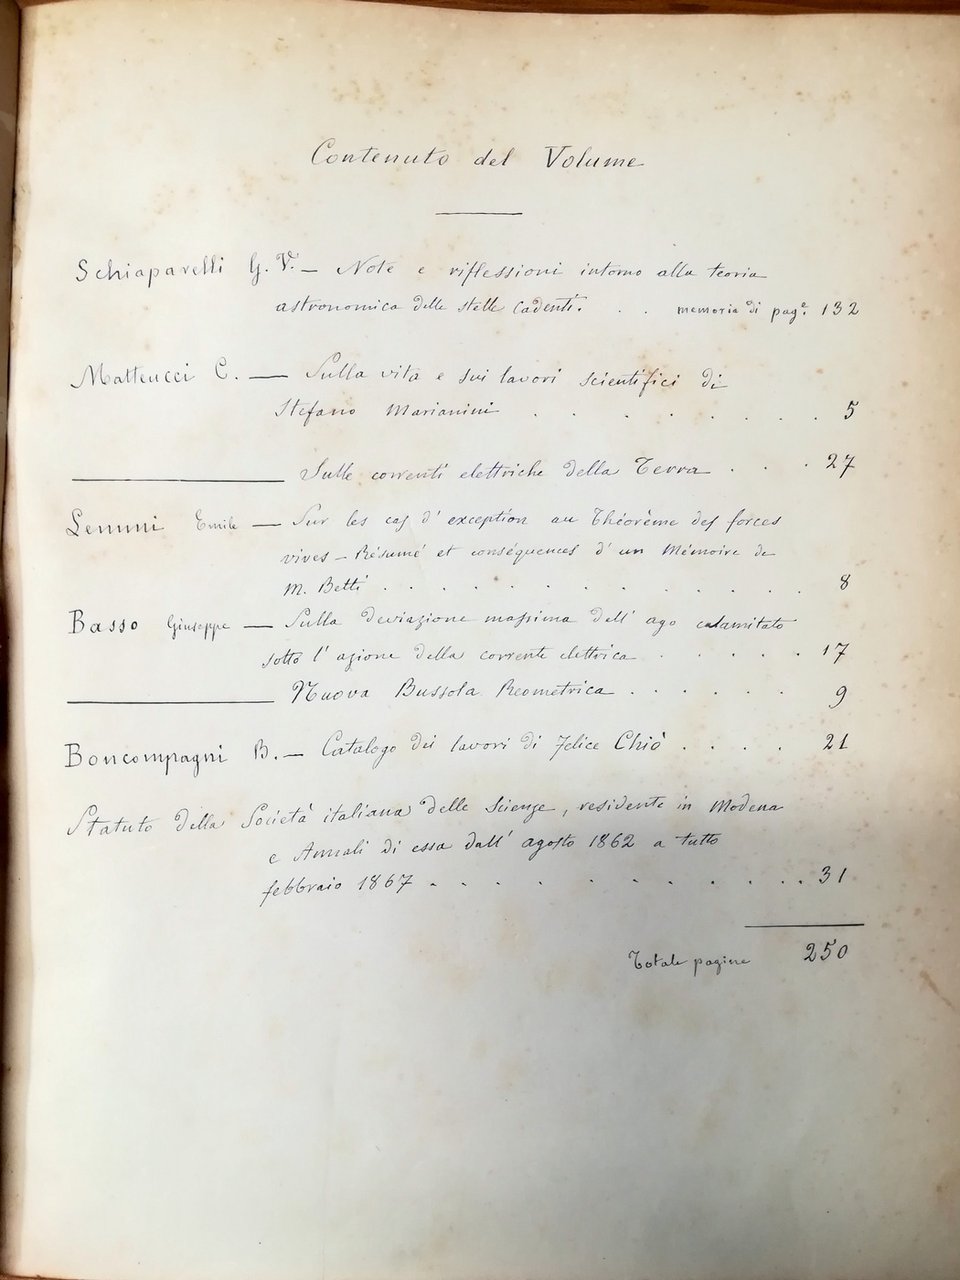 Contenuto del Volume
Schiaparelli G. V. — Note e riflessioni intorno alla teoria
astronomica delle stelle cadenti. . . memoria di pag.e 132
Matteucci C. — Sulla vita e sui lavori scientifici di
Stefano Marianini . . . . . . . 5
——— Sulle correnti elettriche della Terra . . . 27
Lemmi Emile — Sur les cas d'exception au Théorème des forces
vives – Résumé et conséquences d'un Mémoire de
M. Betti . . . . . . . . . . . 8
Basso Giuseppe — Sulla deviazione massima dell'ago calamitato
sotto l'azione della corrente elettrica . . . . . 17
——— Nuova Bussola Reometrica . . . . . . 9
Boncompagni B. — Catalogo dei lavori di Felice Chiò . . . . 21
Statuto della Società italiana delle Scienze, residente in Modena
e Annali di essa dall'agosto 1862 a tutto
febbraio 1867 . . . . . . . . . . . 31
Totale pagine 250